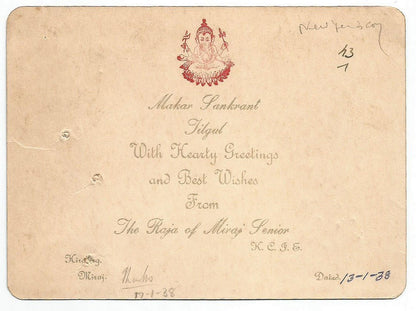 New Year's day
13
1
Makar Sankrant
Tilgul
With Hearty Greetings
and Best Wishes
From
The Raja of Miraj Senior
K. C. I. E.
Miraj. Thanks Dated. 13-1-38
17-1-38